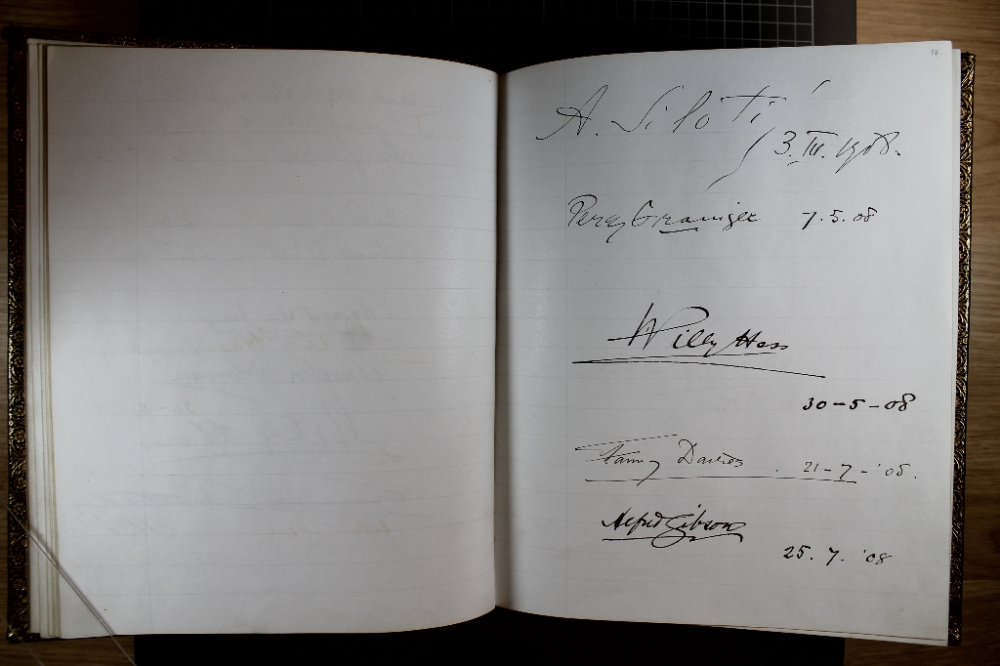 A. Siloti
3. III. 1908.
Percy Grainger 7.5.08
Willy Hess
30-5-08
Fanny Davies . 21-7-'08.
Alfred Gibson
25.7.'08